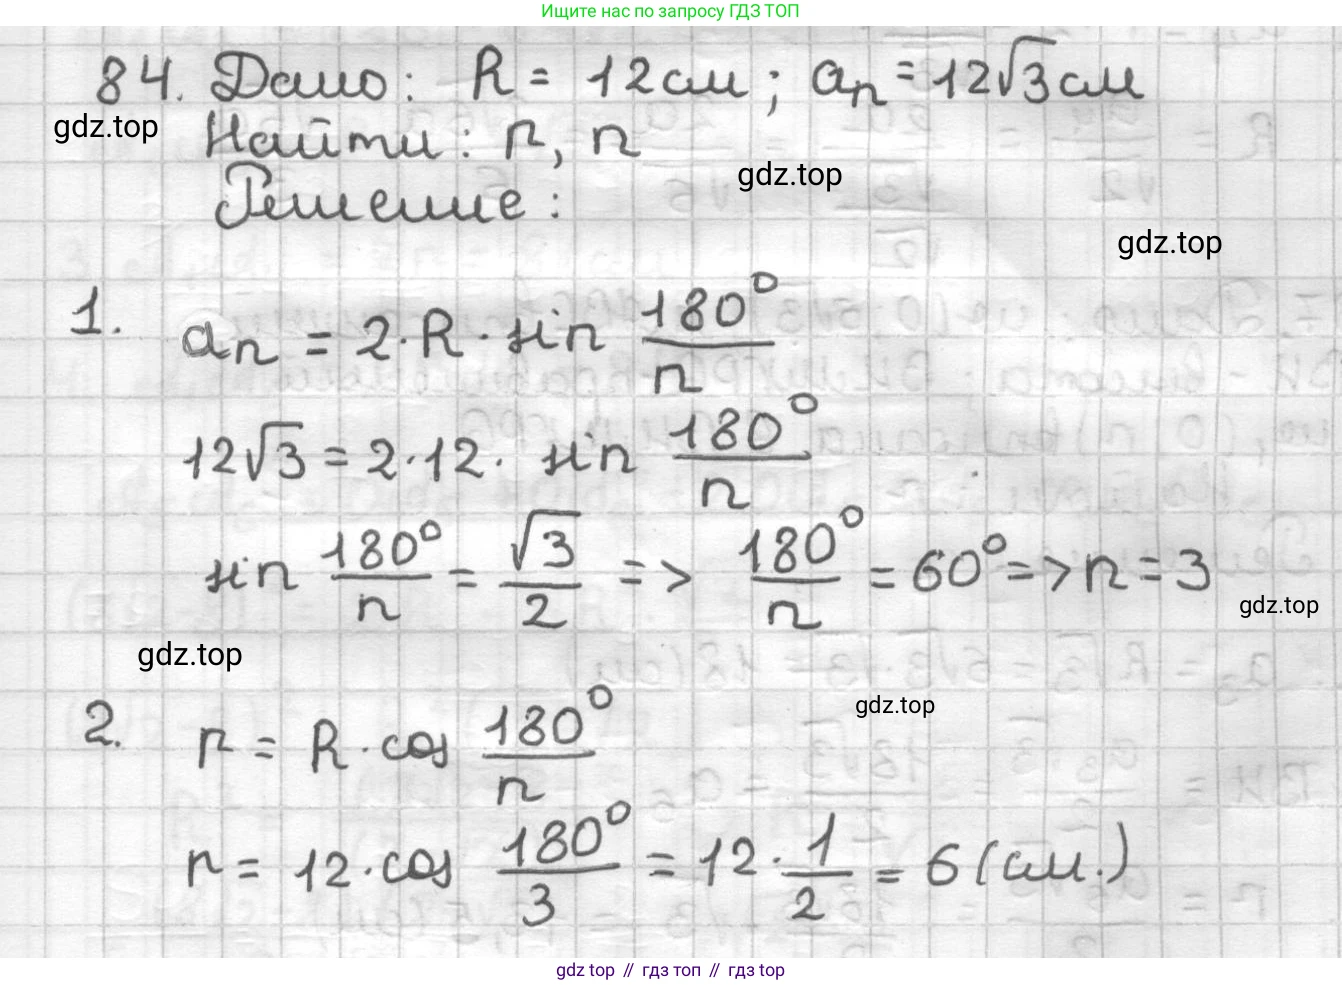 Ищите нас по запросу ГДЗ ТОП
84. Дано: R = 12 см; aₙ = 12√3 см
gdz.top
Найти: r, n
gdz.top
Решение:
gdz.top
1. aₙ = 2·R·sin 180°/n
12√3 = 2·12· sin 180°/n
sin 180°/n = √3/2 => 180°/n = 60° => n = 3
gdz.top
gdz.top
gdz.top
2. r = R·cos 180°/n
r = 12·cos 180°/3 = 12·1/2 = 6 (см.)
gdz top // гдз топ // гдз top